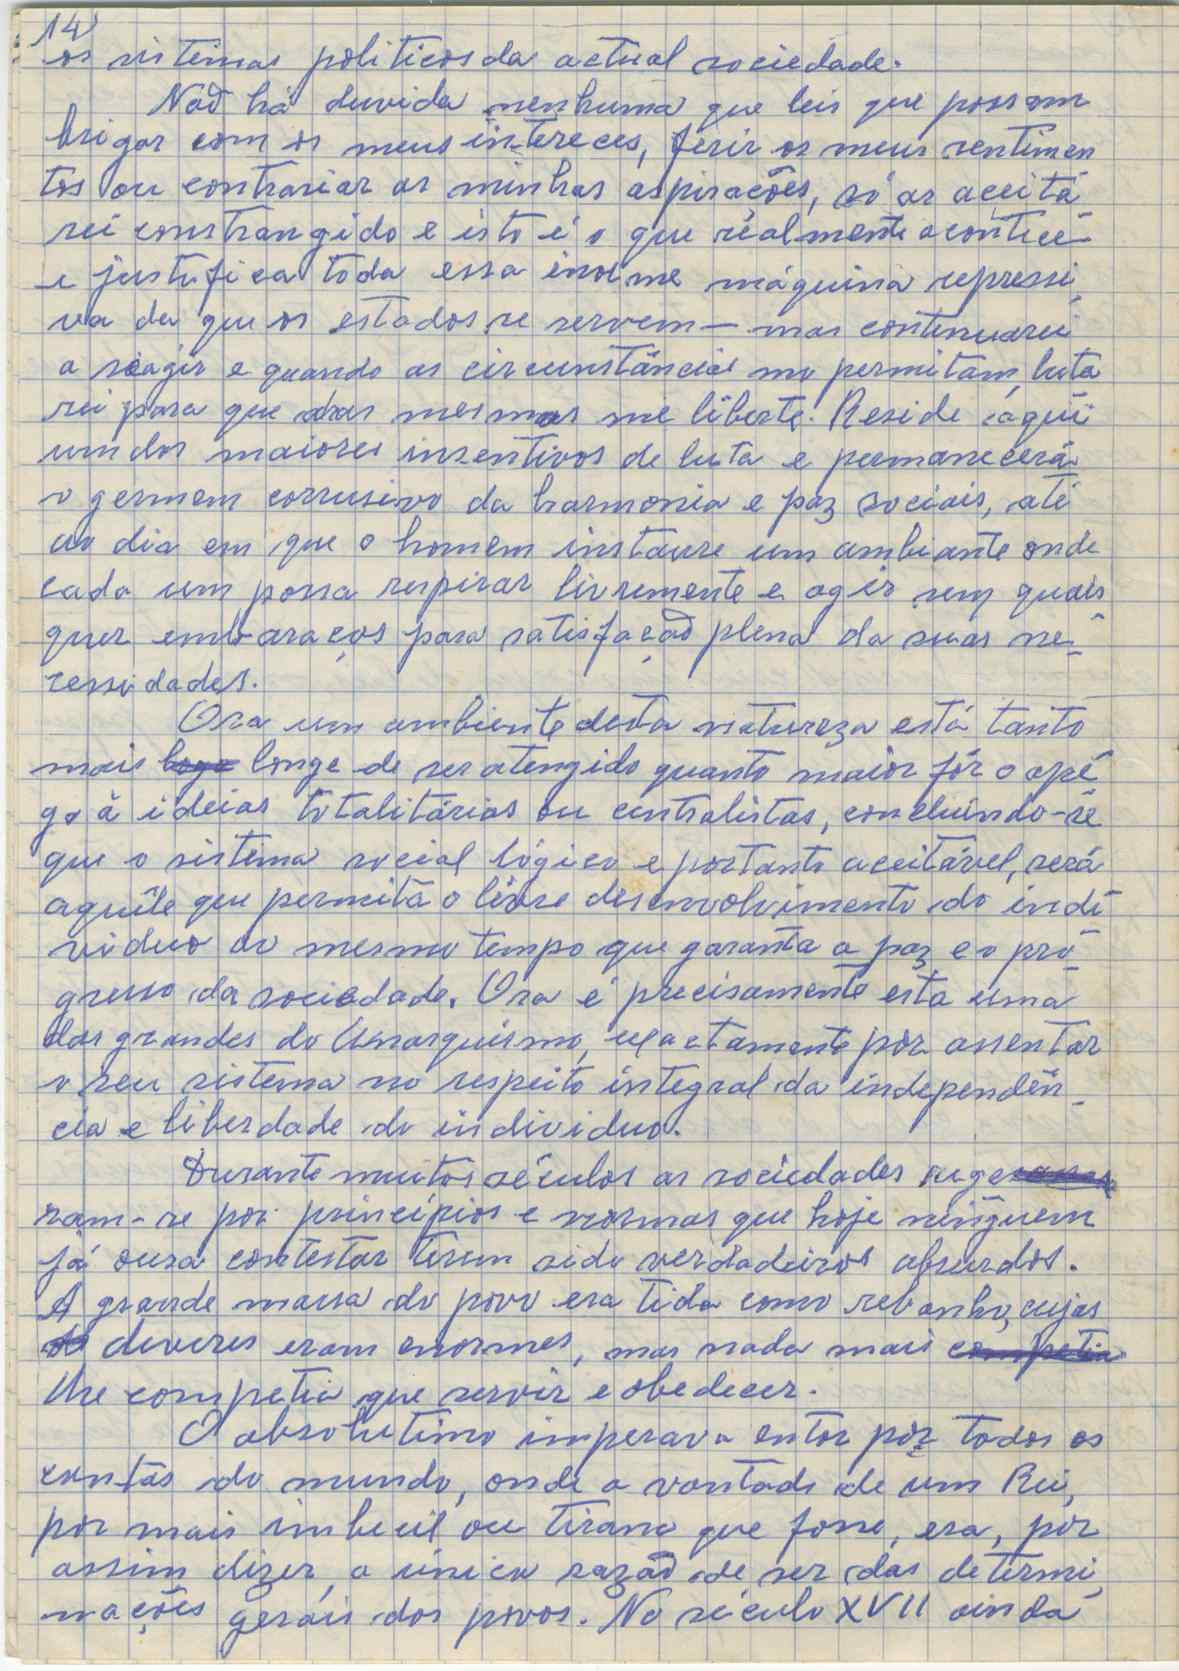 14
os sistemas politicos da actual sociedade.
Não há duvida nenhuma que leis que possam
brigar com os meus intereces, ferir os meus sentimen
tos ou contrariar as minhas aspirações, só as aceita
rei constrangido e isto é o que realmente acontece
e justifica toda essa enorme máquina repressi
va da que os estados se servem — mas continuarei
a reagir e quando as circunstâncias mo permitam, luta
rei para que das mesmas me liberte. Reside aqui
um dos maiores insentivos de luta e permanecerá
o germem corrusivo da harmonia e paz sociais, até
ao dia em que o homem instaure um ambiante onde
cada um possa respirar livremente e agir sem quais
quer embaraços para satisfação plena da suas ne-
cessidades.
Ora um ambiente desta natureza está tanto
mais longe de ser atengido quanto maior fôr o apê
go á ideias totalitárias ou centralistas, concluindo-se
que o sistema social lógico e portanto aceitável, será
aquêle que permita o livre desenvolvimento do indi
viduo ao mesmo tempo que garanta a paz e o pro-
gresso da sociedade. Ora é precisamente esta uma
das grandes do Anarquismo, exactamente por assentar
o seu sistema no respeito integral da independên-
cia e liberdade do individuo.
Durante muitos séculos as sociedades rege
ram-se por principios e normas que hoje ninguem
já ousa contestar terem sido verdadeiros absurdos.
A grande massa do povo era tida como rebanho, cujas
deveres eram enormes, mas nada mais competia
lhe competia que servir e obedecer.
O absolutimo imperava entor por todos os
cantos do mundo, onde a vontade de um Rei,
por mais imbecil ou tirano que fosse, era, por
assim dizer, a única razão de ser das determi
nações gerais dos povos. No século XVII ainda